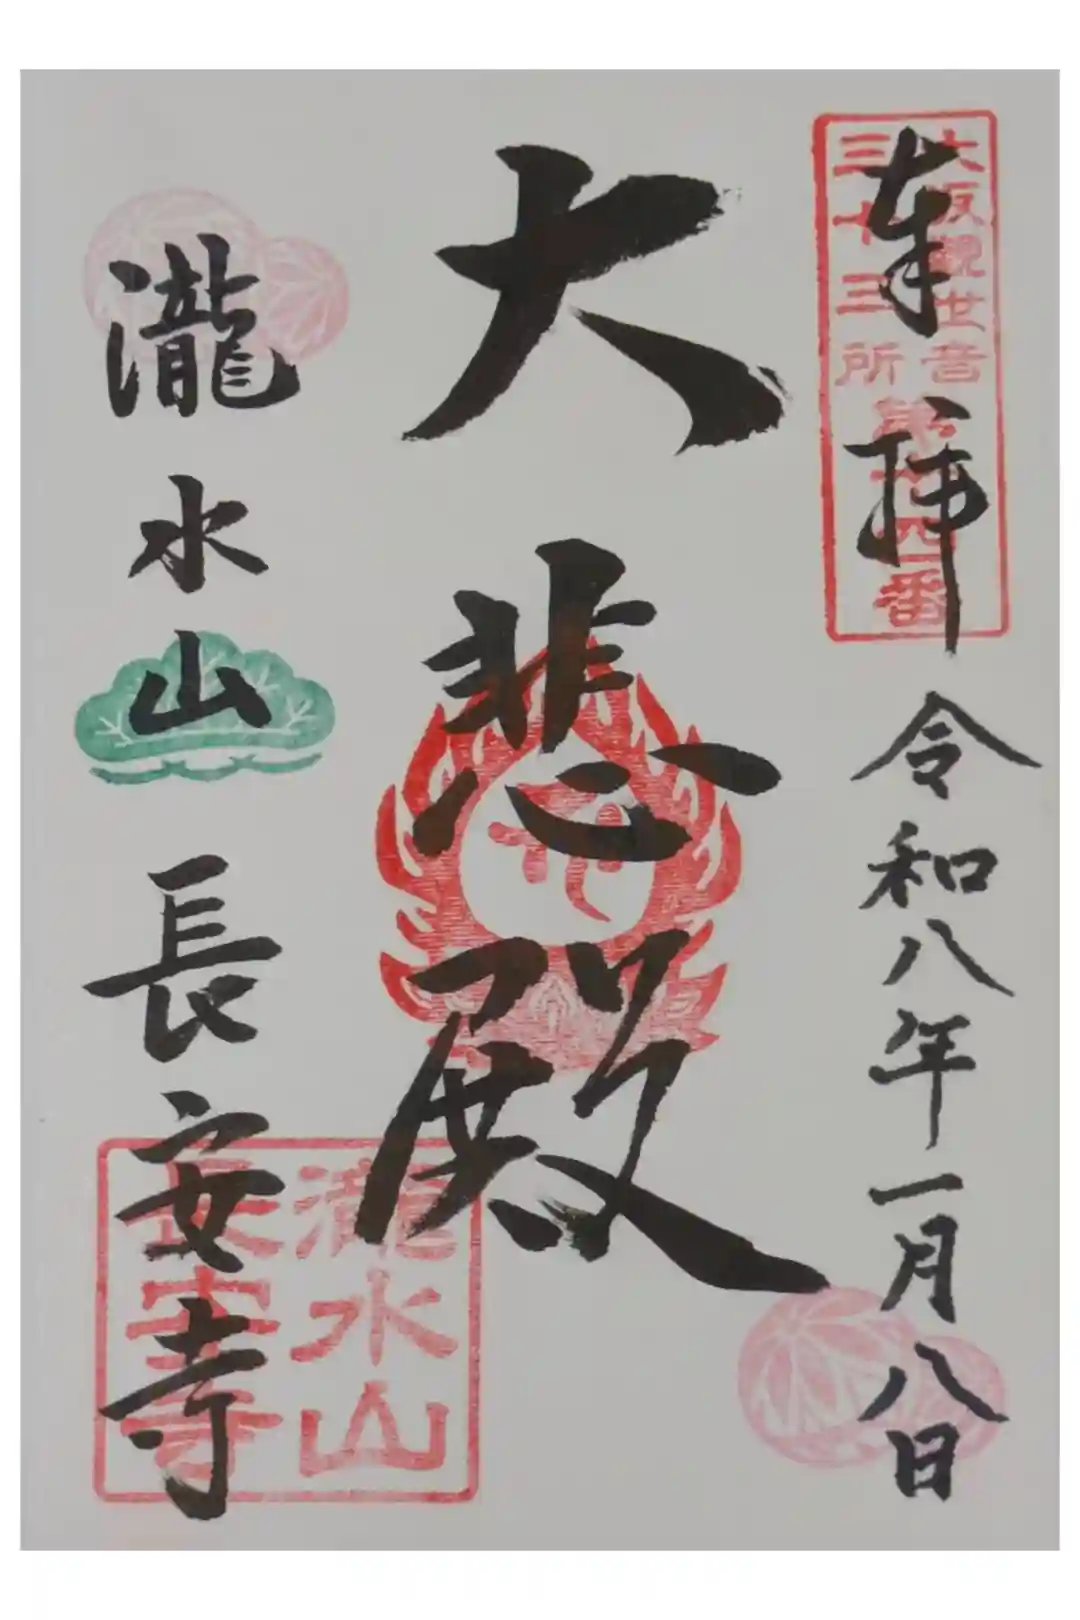 奉拝
令和八年一月八日
大坂観世音
三十三所
第十四番
大悲殿
瀧水山長安寺
瀧水山
長安寺